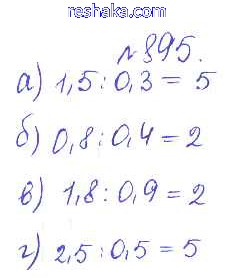 reshaka.com
№895.
а) 1,5 : 0,3 = 5
б) 0,8 : 0,4 = 2
в) 1,8 : 0,9 = 2
г) 2,5 : 0,5 = 5